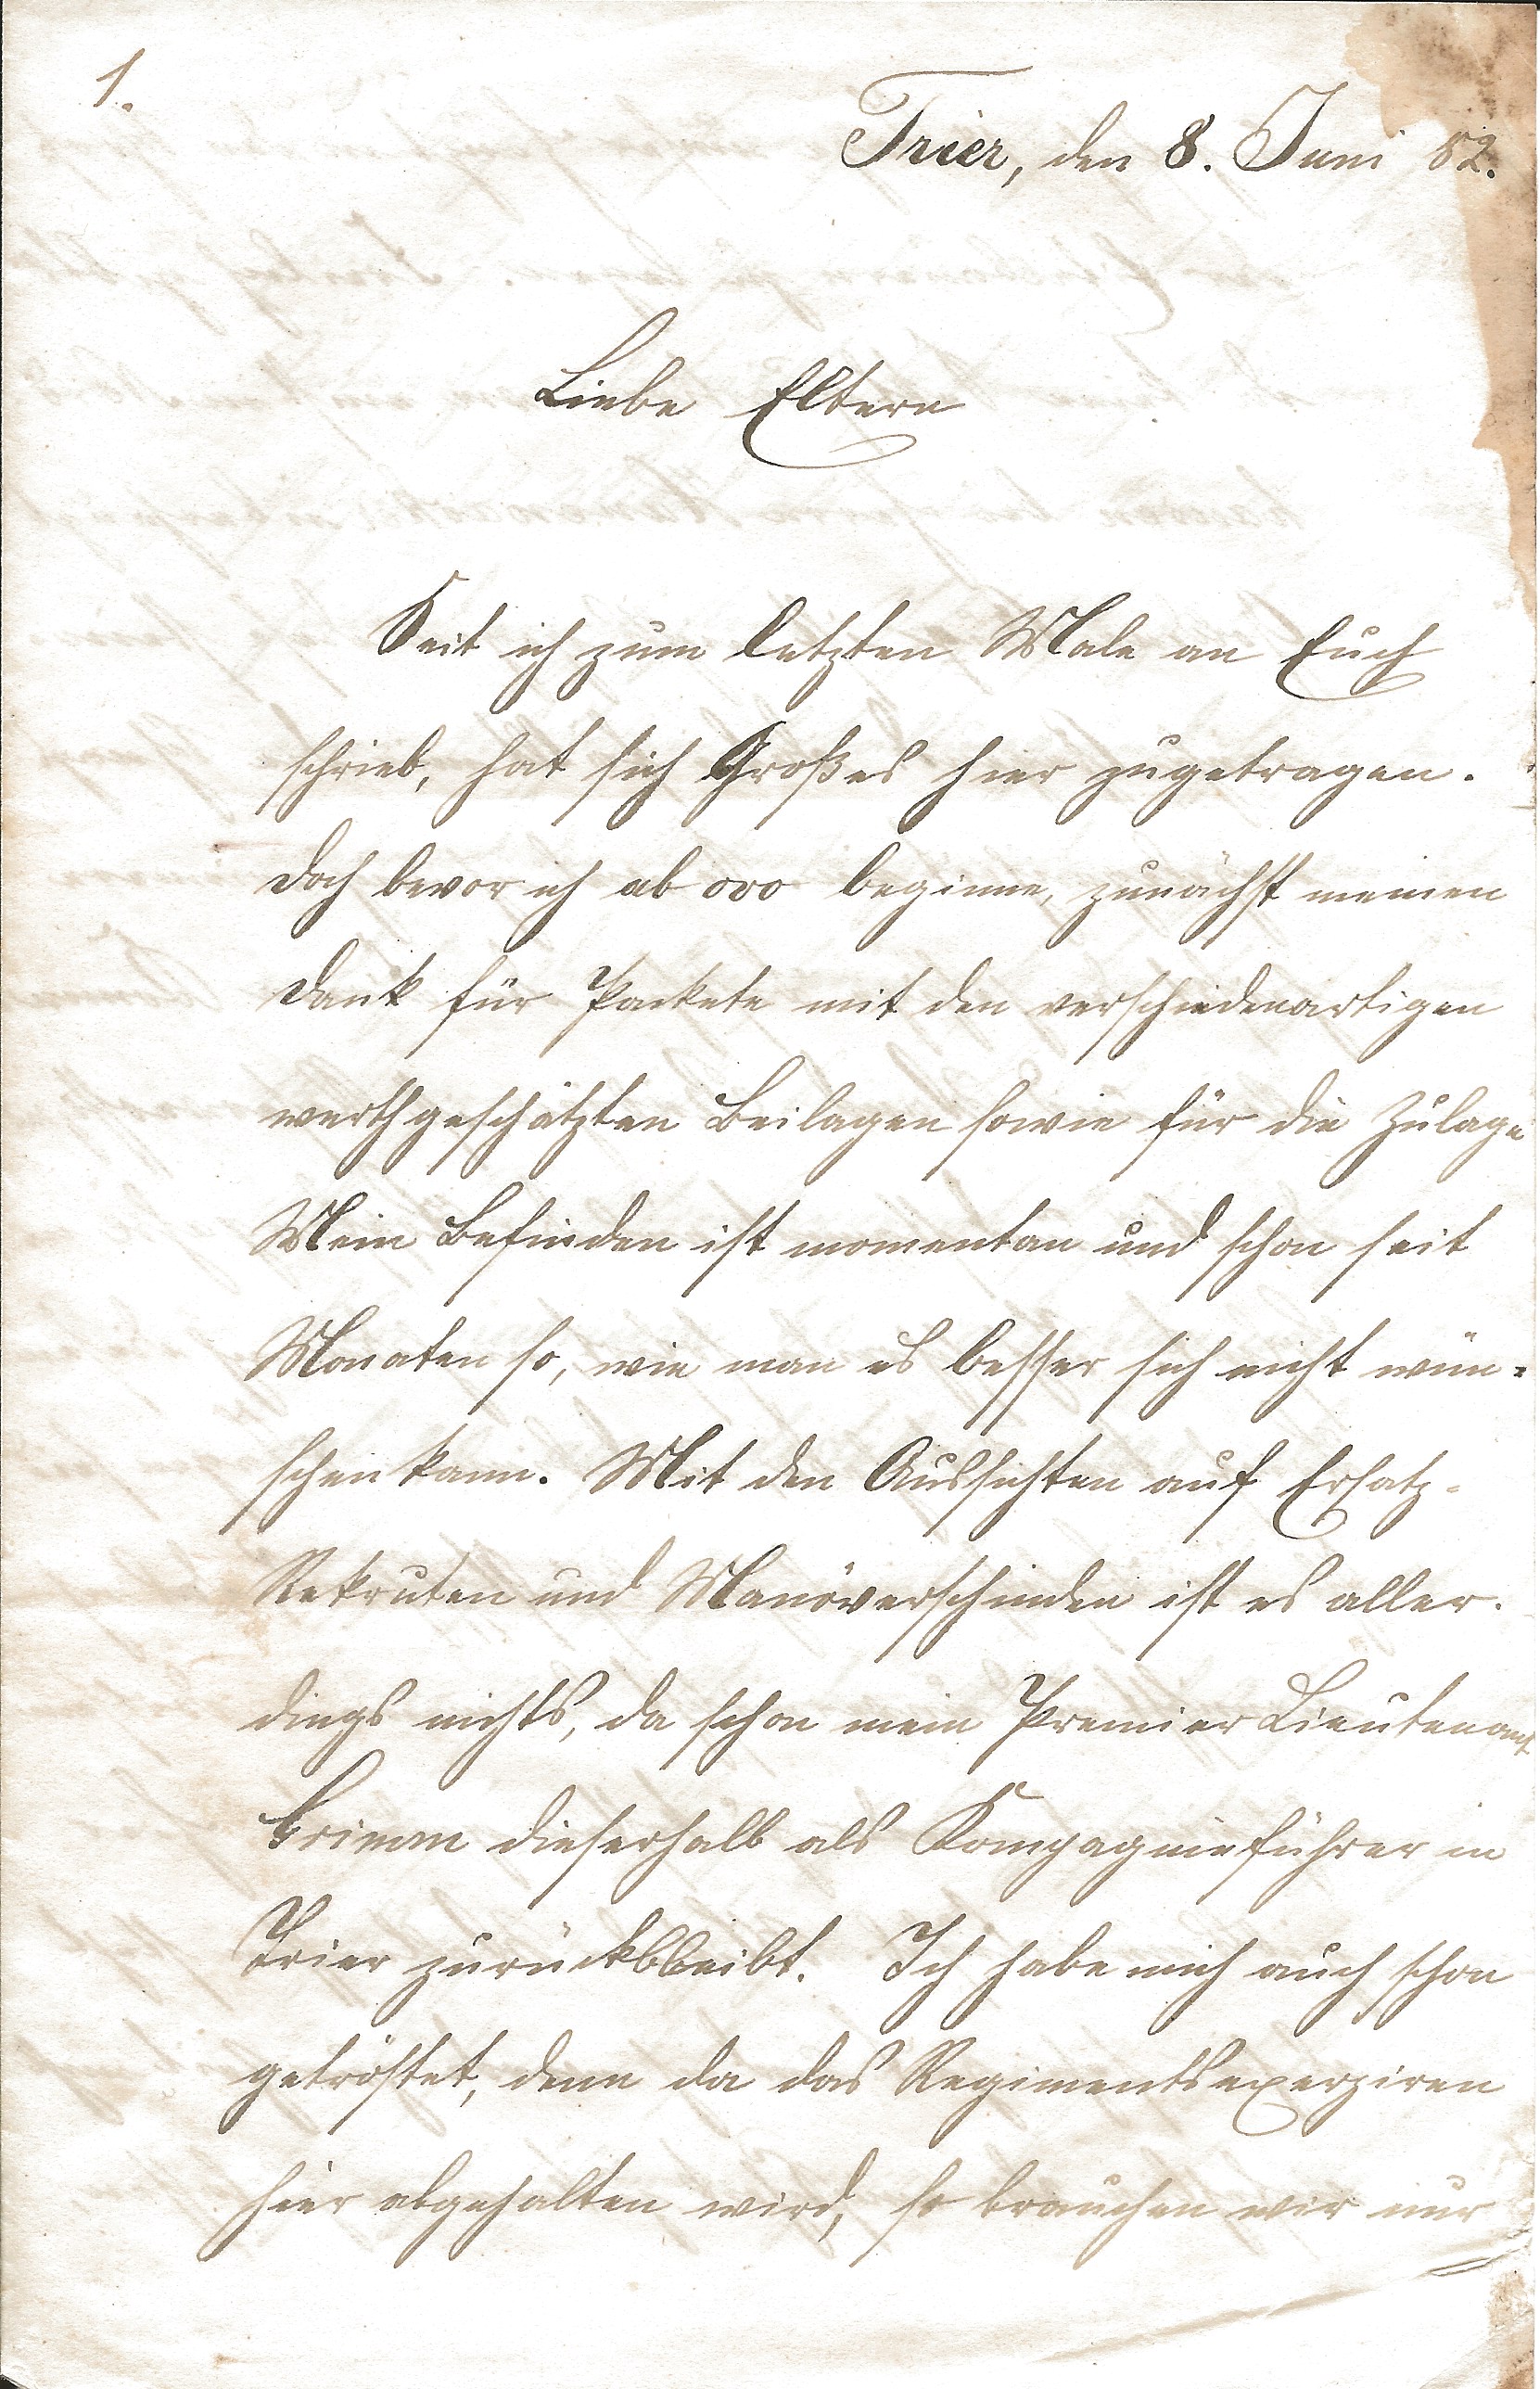 1.
Trier, den 8. Juni 82.
Liebe Eltern
Seit ich zum letzten Male an Euch
schrieb, hat sich Großes hier zugetragen.
Doch bevor ich ab ovo beginne, zunächst meinen
Dank für Packete mit den verschiedenartigen
werthgeschätzten Beilagen sowie für die Zulage
Mein Befinden ist momentan und schon seit
Monaten so, wie man es besser sich nicht wün-
schen kann. Mit den Aussichten auf Ersatz-
Rekruten und Manöverschinden ist es aller-
dings nichts, da schon mein Premier Lieutenant
dieserhalb als Kompagnieführer in
Trier zurückbleibt. Ich habe mich auch schon
getröstet, denn da das Regimentsexerziren
hier abgehalten wird, so brauchen wir nur